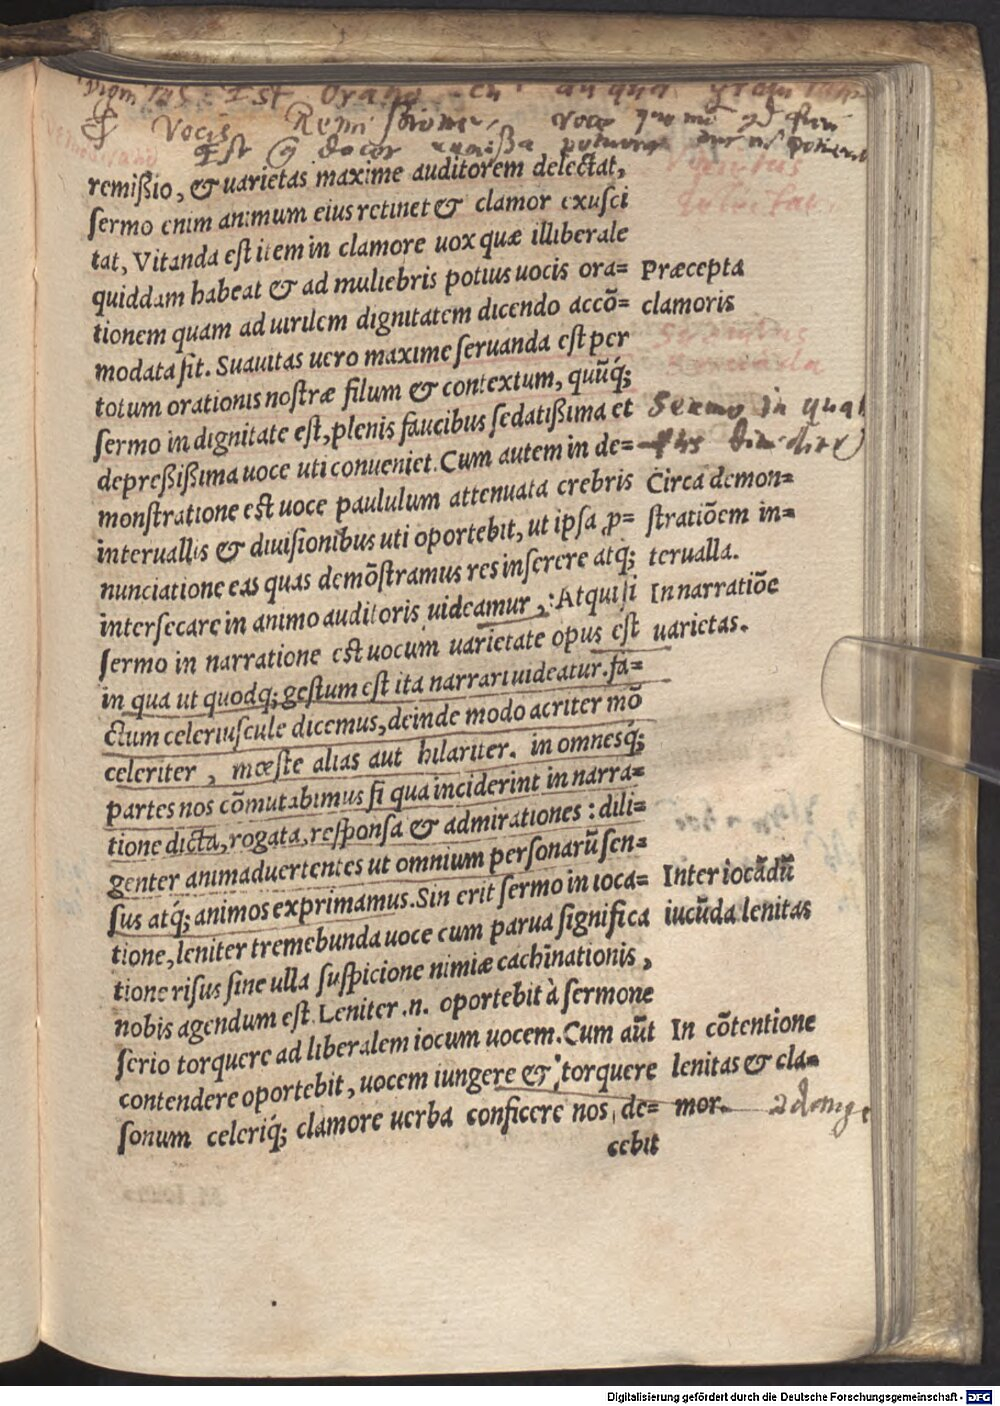 Vocis
remißio, & uarietas maxime auditorem delectat,
sermo enim animum eius retinet & clamor exusci
tat, Vitanda est item in clamore uox quæ illiberale
quiddam habeat & ad muliebris potius uocis ora=
tionem quam ad uirilem dignitatem dicendo accō=
modata sit. Suauitas uero maxime seruanda est per
totum orationis nostræ filum & contextum, quūq́;
sermo in dignitate est, plenis faucibus sedatißima et
depreßißima uoce uti conueniet. Cum autem in de=
monstratione est uoce paululum attenuata crebris
interuallis & diuisionibus uti oportebit, ut ipsa p=
nunciatione eas quas demōstramus res inserere atq́;
intersecare in animo auditoris uideamur,: At qui si
sermo in narratione est uocum uarietate opus est
in qua ut quodq; gestum est ita narrari uideatur. fa=
ctum celeriuscule dicemus, deinde modo acriter mō
celeriter, mœste alias aut hilariter. in omnesq́;
partes nos cōmutabimus si qua inciderint in narra=
tione dicta, rogata, responsa & admirationes : dili=
genter animaduertentes ut omnium personarū sen=
sus atq́; animos exprimamus. Sin erit sermo in ioca=
tione, leniter tremebunda uoce cum parua significa
tione risus sine ulla suspicione nimiæ cachinationis,
nobis agendum est. Leniter .n. oportebit à sermone
serio torquere ad liberalem iocum uocem. Cum aūt
contendere oportebit, uocem iungere & torquere
sonum celeriq́; clamore uerba conficere nos de=
cebit
Præcepta
clamoris
Sermo in
Circa demon=
stratiōem in=
terualla.
In narratiōe
uarietas.
Inter iocādū
iucūda lenitas
In cōtentione
lenitas & cla=
mor.
Digitalisierung gefördert durch die Deutsche Forschungsgemeinschaft - DFG